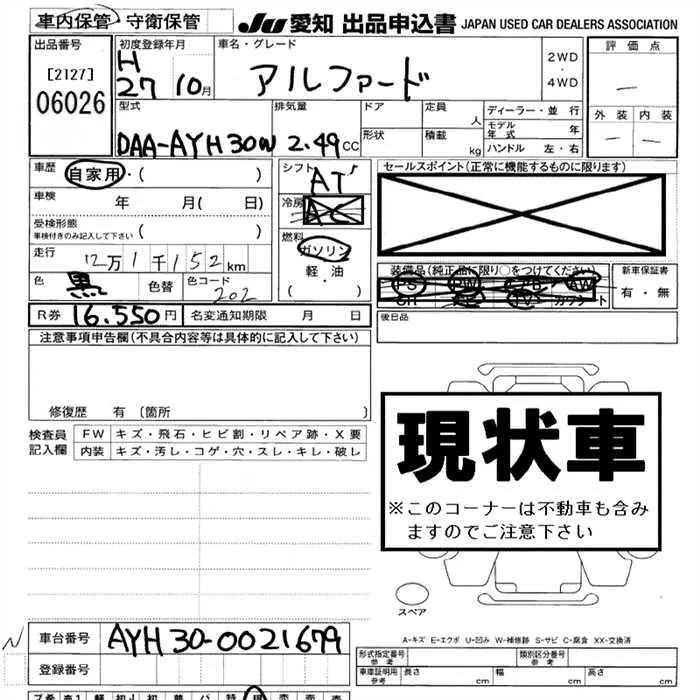 車内保管 ・ 守衛保管 JU 愛知 出品申込書 JAPAN USED CAR DEALERS ASSOCIATION
出品番号 初度登録年月 車名・グレード 評価点
[2127] H 2WD
06026 27 10月 アルファード ・
4WD
型式 排気量 ドア 定員 人 ディーラー・並行 外装 内装
モデル年式 年
DAA-AYH30W 2.49cc 形状 積載 kg ハンドル 左・右
車歴 自家用・( ) シフト AT セールスポイント(正常に機能するものに限ります)
車検 年 月( 日) 冷房 AC
受検形態
車検付きのみ記入して下さい ( ) 燃料
ガソリン
走行 12万1千152km 軽・油 装備品(純正品に限り○をつけてください) 新車保証書
色 黒 色替 色コード 202 ( ・ ) PS PW AW 有・無
R券 16.550円 名変通知期限 月 日 後日品
注意事項申告欄(不具合内容等は具体的に記入して下さい)
修復歴 有 [箇所 ]
検査員 FW キズ・飛石・ヒビ割・リペア跡・X要
記入欄 内装 キズ・汚レ・コゲ・穴・スレ・キレ・破レ
現状車
※このコーナーは不動車も含み
ますのでご注意下さい
スペア
A-キズ E-エクボ U-凹み W-補修跡 S-サビ C-腐食 XX-交換済
N 車台番号 AYH30-0021679
登録番号 形式指定番号 参考 類別区分番号 参考
車庫証明用 参考 長さ 幅 高さ